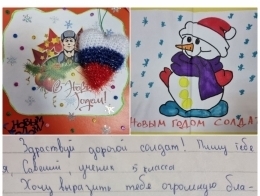 С Новым
Годом!
НОВЫМ ГОДОМ СОЛДА
Здраствуй дорогой солдат! Пишу тебе
я, Савелий, ученик 5 класса
Хочу выразить тебе огромную бла-